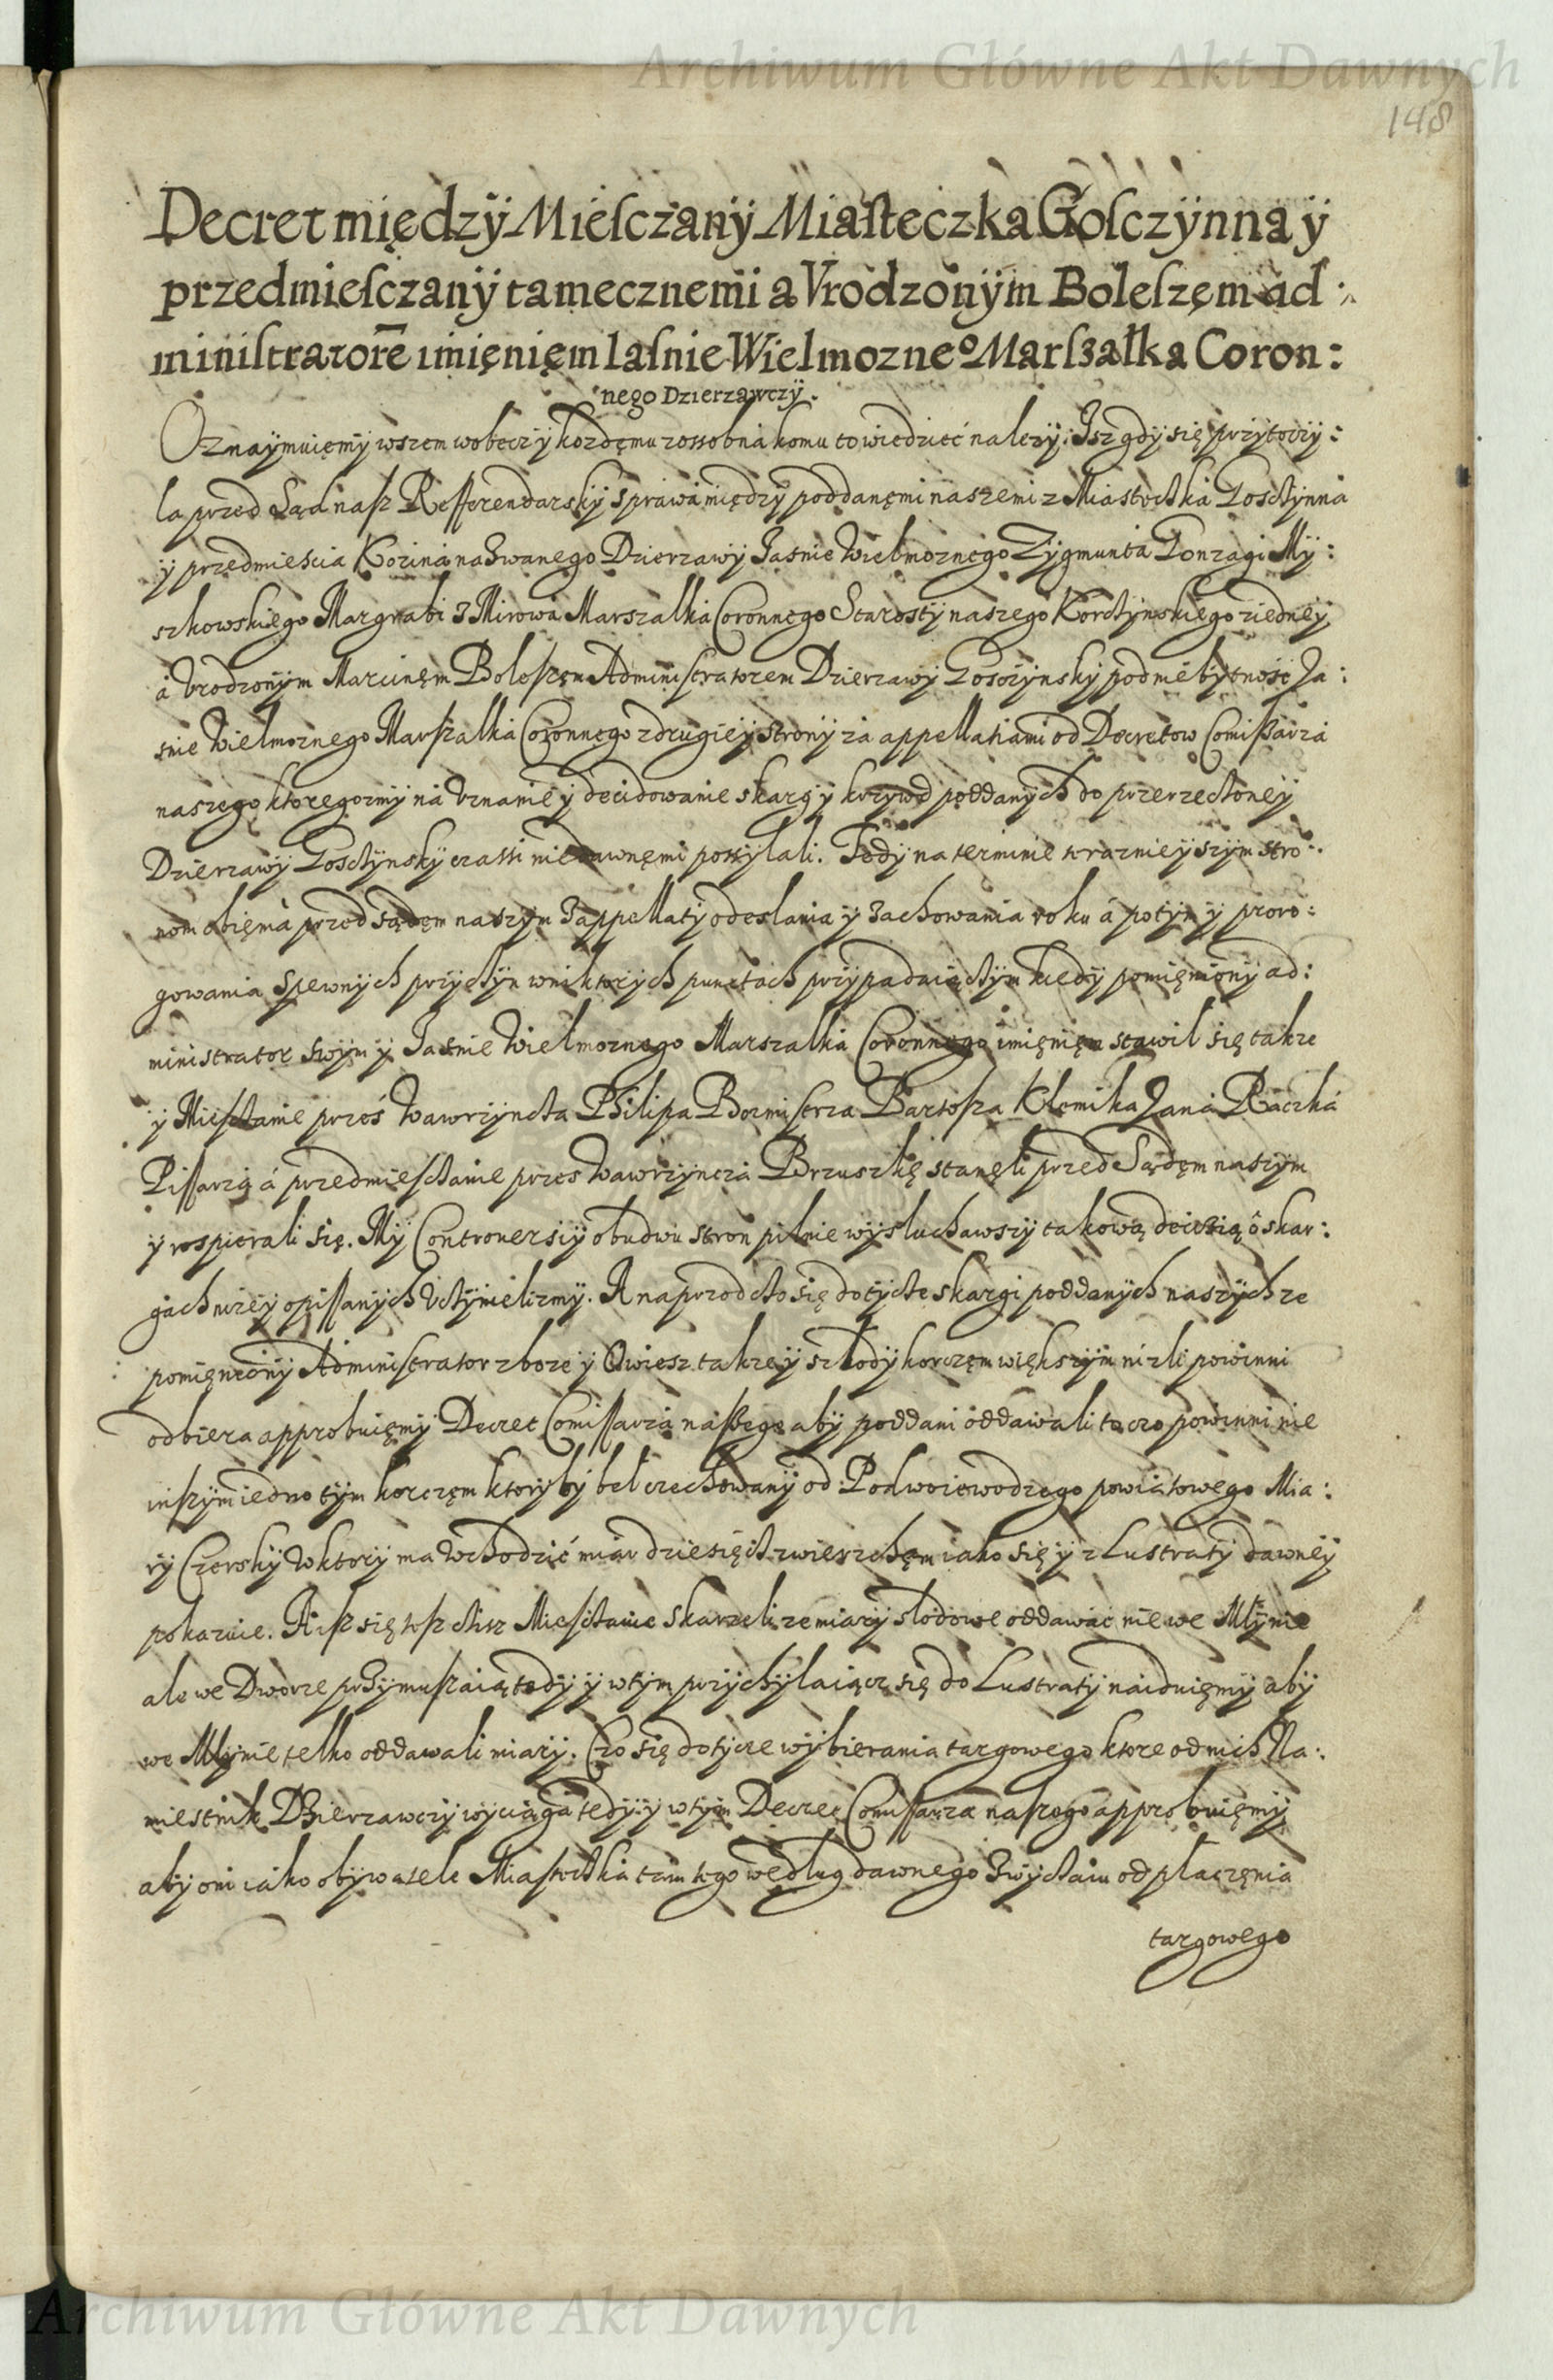 Archiwum Główne Akt Dawnych
148
Decret między Miesczany Miasteczka Gosczynna y
przedmiesczany tamecznemi a Vrodzonym Boleszęm ad:
ministratorē imięnięm Iasnie Wielmozneº Marszałka Coron:
nego Dzierzawczy.
Oznaymuięmy wszem wobecz y kozdęmu zossobna komu to wiedziec nalezy. Isz gdy się przytoczy:
la przed Sąd nasz Refferendarsky sprawa między poddanęmi naszemi z Miasteczka Gosczynna
y przedmiescia Kozina nazwanego Dzierzawy Jasnie Wielmoznego Zygmunta Gonzagi My:
szkowskiego Margrabi z Mirowa Marszalka Coronnego Starosty naszego Korczynskiego ziedney
a Vrodzonym Marcinęm Boleszęm Administratorem Dzierzawy Gosczynsky pod niebytnosc Ja:
snie Wielmoznego Marszalka Coronnego z drugiey strony za appellatiami od Decretow Comissarza
naszego ktoregozmy na Vznanie y decidowanie skarg y krzywd poddanych do przerzeczoney
Dzierzawy Gosczynsky czassi niedawnęmi possylali. Tedy na terminie terazniejszym stro:
nom obięma przed Sądęm naszym z appellaty odeslania y zachowania roku a potym y proro:
gowania s pewnych przyczyn w niktorych punctach przypadaiączym kiedy pomięniony ad:
ministrator swym y Jasnie Wielmoznego Marszalka Coronnego imięnięm stawil się takze
y Miesczanie przes Wawrzyncza Philipa Bozmistrza Bartosza Klemika Jana Raczka
Pissarza a przedmiesczanie przes Wawrzyncza Brzuszkę stanęli przed Sądęm naszym
y rospierali się. My Controuersiy obudwu stron pilnie wysluchawszy takową decisią o skar:
gach nizey opissanych Vczynielizmy. A naprzod czo się dotycze skargi poddanych naszych ze
pomięniony Administrator zboze y Owiesz takze y szkody korczęm większym nizli powinni
odbiera approbuięmy Decret Comissarza naszego aby poddani oddawali to czo powinni nie
inszym iedno tym korczęm ktoryby bel czechowany od Podwoiewodzego powiatowego Mia:
ry Czersky w ktory ma wchodzić miar dziesięcz z wierzchęm iako się y z Lustraty dawney
pokazuie. A isz się tesz cisz Miesczanie skarzeli ze miary slodowe oddawac nie we Mlynie
ale we Dworze przymuszaią tedy y w tym przychylaiącz się do Lustraty naiduięmy aby
we Mlynie telko oddawali miary. Czo się dotycze wybierania targowego ktore od nich Na:
miestnik Dzierzawczy wyciąga tedy y w tym Decret Comissarza naszego approbuięmy
aby oni iako obywatele Miasteczka tamtego według dawnego zwyczaiu od placzęnia
targowego
Archiwum Główne Akt Dawnych